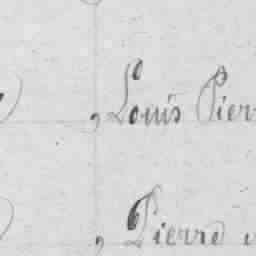 , Louis Pier
, Pierre